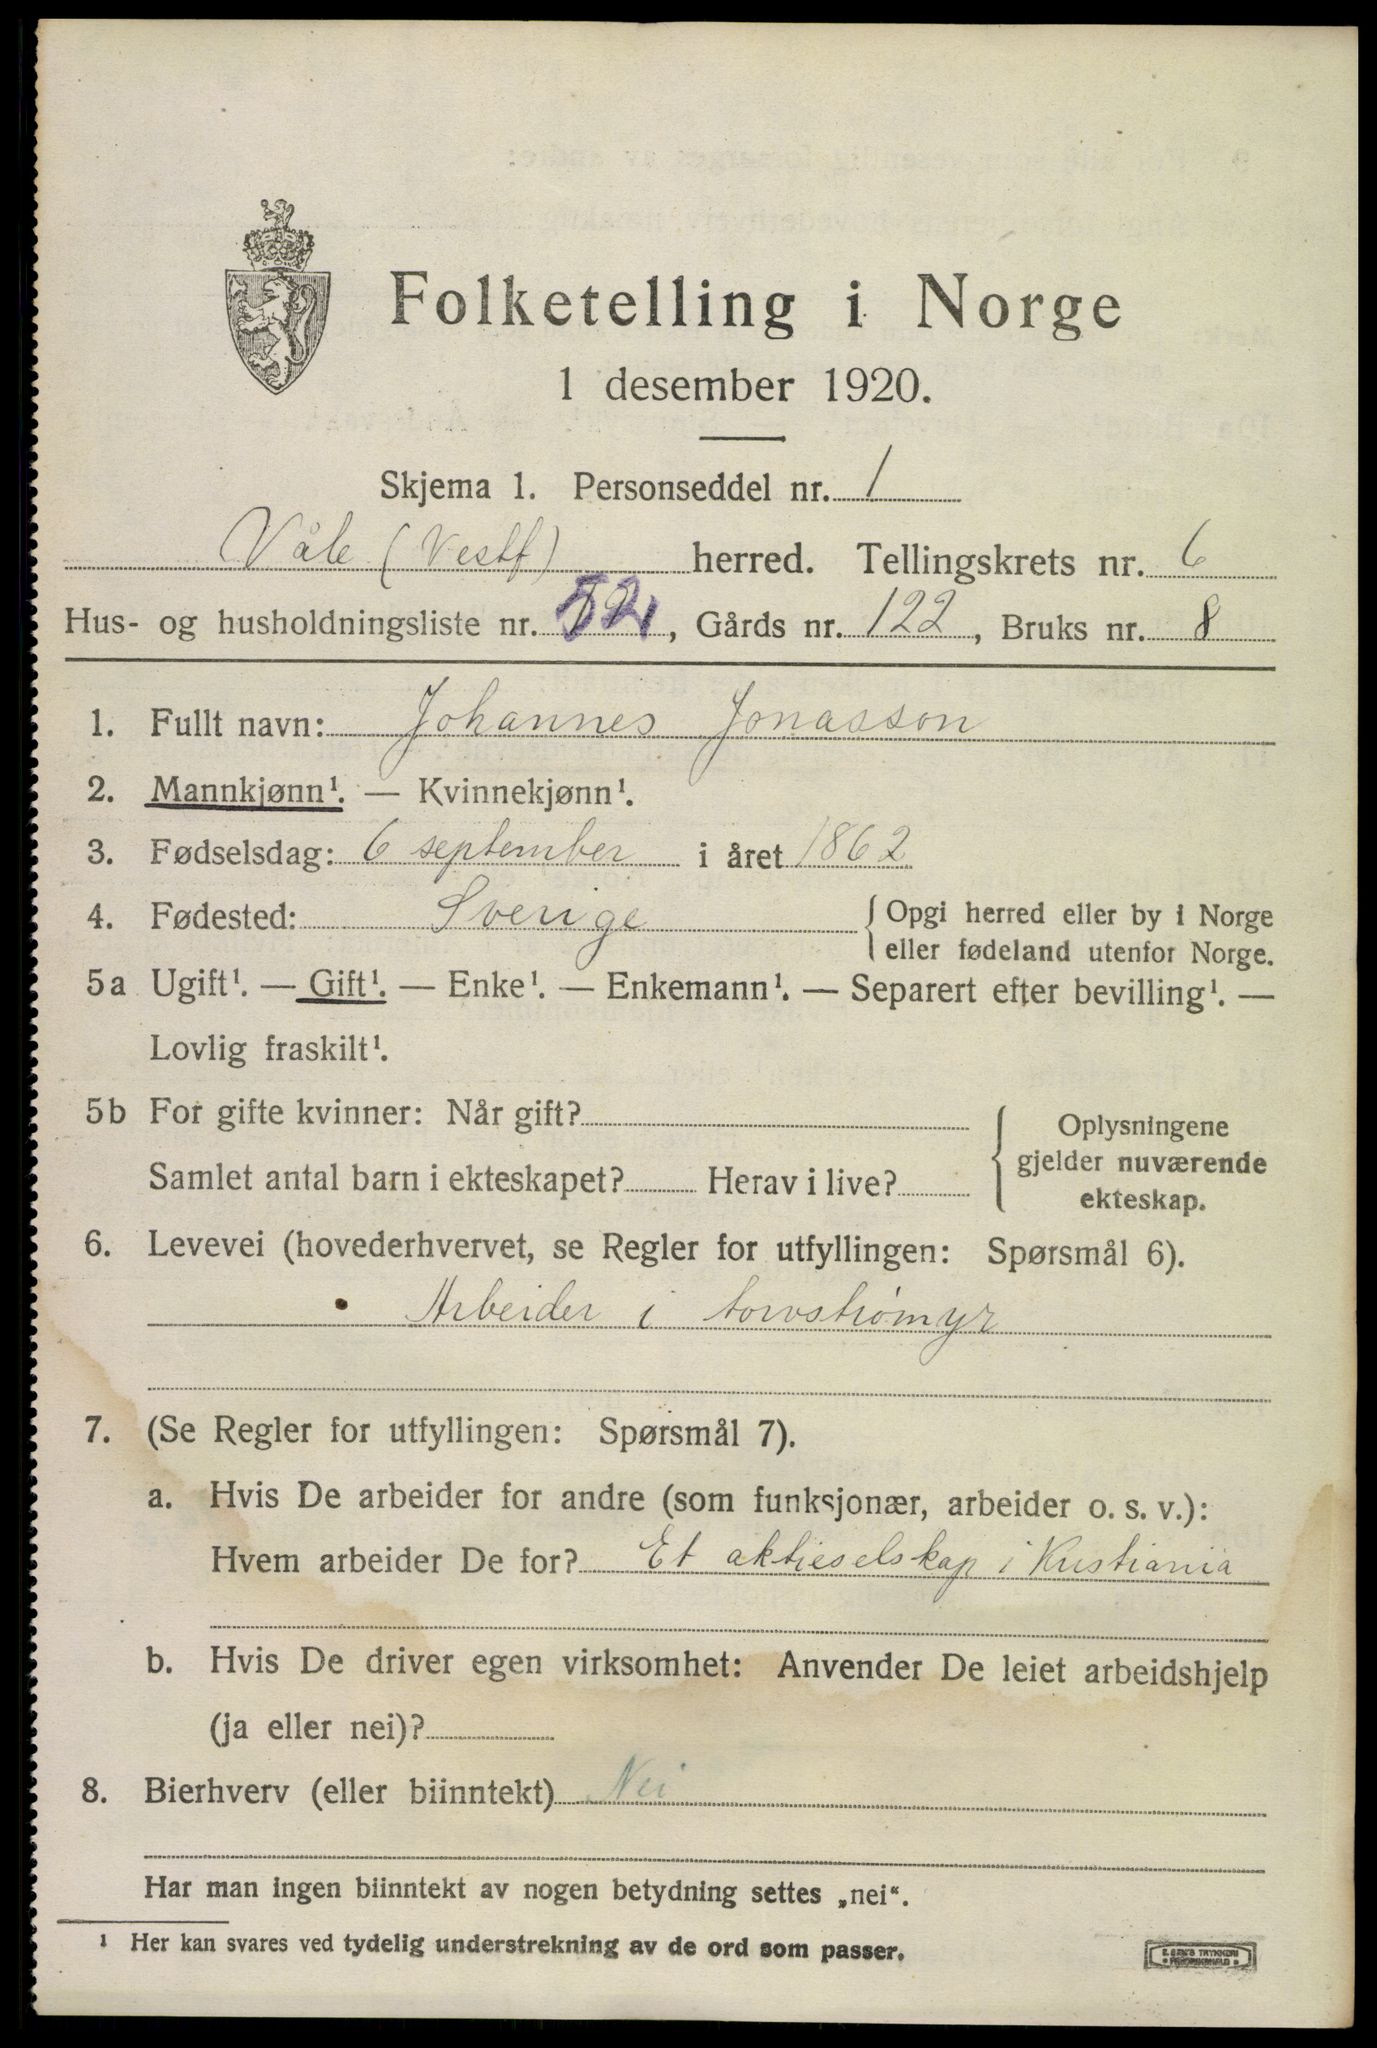 Folketelling i Norge
1 desember 1920.
Skjema 1. Personseddel nr. 1
Våle (Vestf) herred. Tellingskrets nr. 6
Hus- og husholdningsliste nr. 52, Gårds nr. 122, Bruks nr. 8
1. Fullt navn: Johannes Jonasson
2. Mannkjønn¹. — Kvinnekjønn¹.
3. Fødselsdag: 6 september i året 1862
4. Fødested: Sverige { Opgi herred eller by i Norge
eller fødeland utenfor Norge.
5a Ugift¹. — Gift¹. — Enke¹. — Enkemann¹. — Separert efter bevilling¹. —
Lovlig fraskilt¹.
5b For gifte kvinner: Når gift?
Samlet antal barn i ekteskapet? Herav i live?
Oplysningene
gjelder nuværende
ekteskap.
6. Levevei (hovederhvervet, se Regler for utfyllingen: Spørsmål 6).
Arbeider i torvstrømyr
7. (Se Regler for utfyllingen: Spørsmål 7).
a. Hvis De arbeider for andre (som funksjonær, arbeider o. s. v.):
Hvem arbeider De for? Et aktieselskap i Kristiania
b. Hvis De driver egen virksomhet: Anvender De leiet arbeidshjelp
(ja eller nei)?
8. Bierhverv (eller biinntekt) Nei
Har man ingen biinntekt av nogen betydning settes „nei“.
¹ Her kan svares ved tydelig understrekning av de ord som passer.